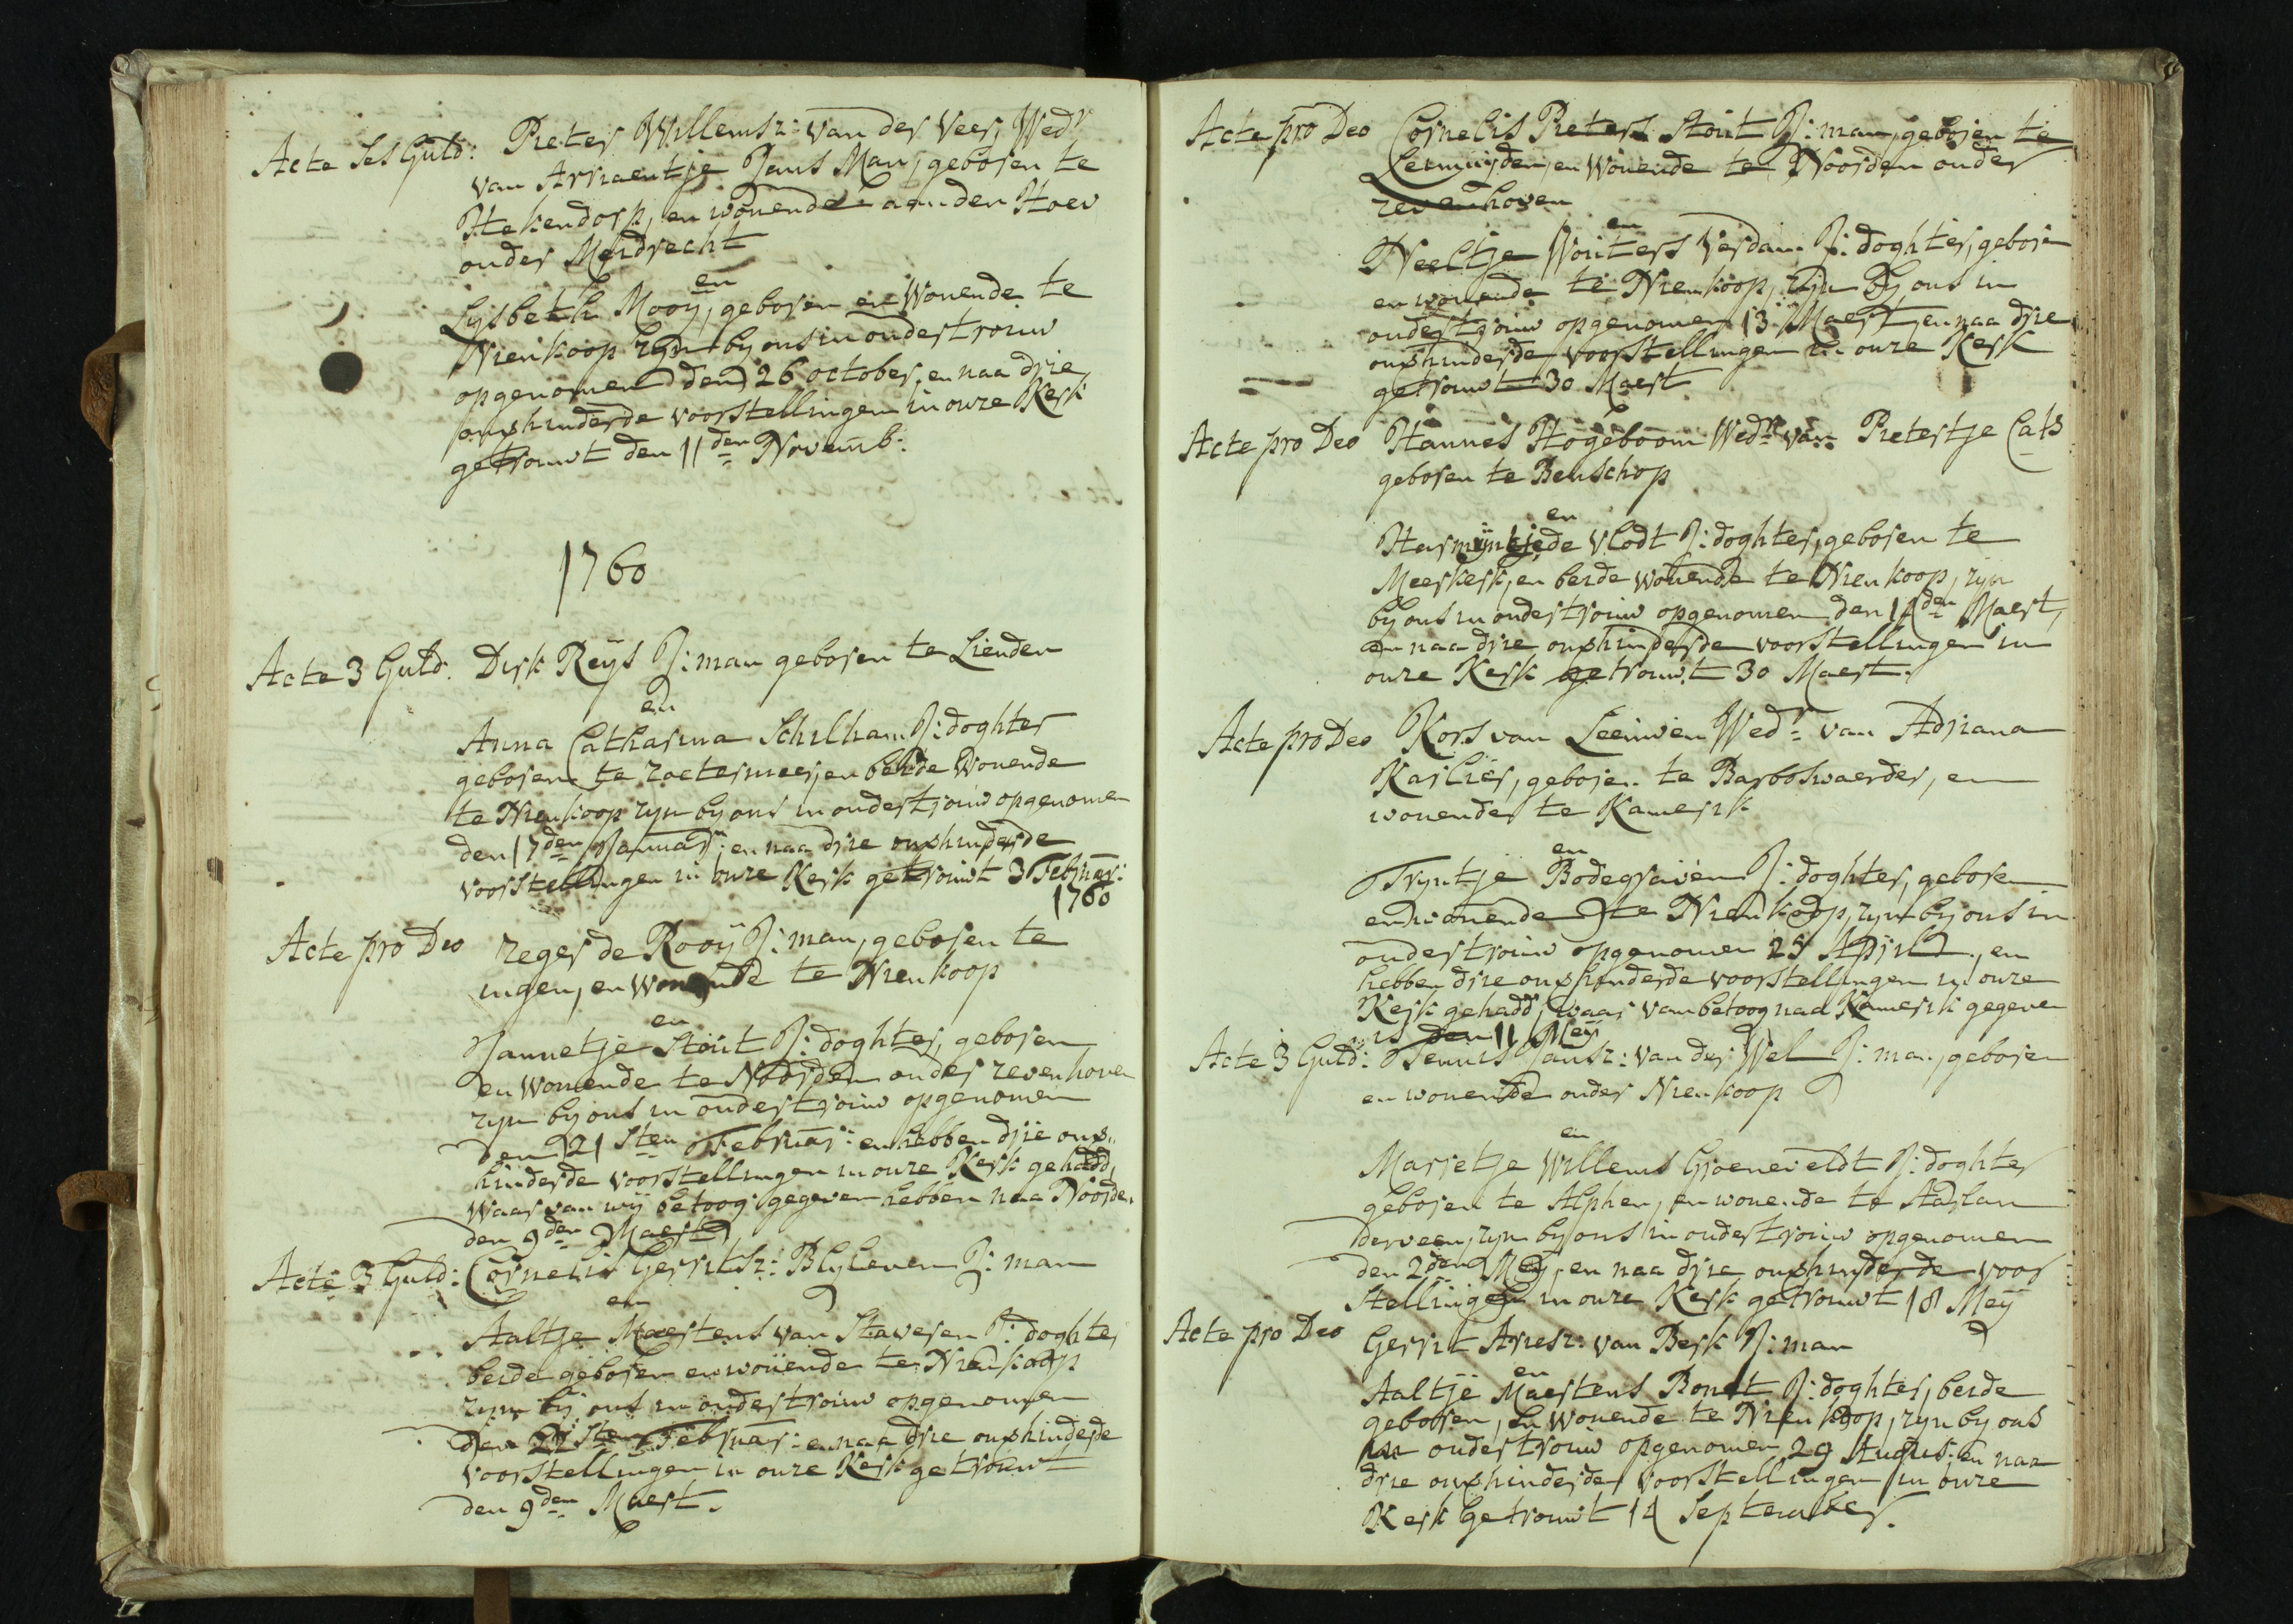 Acte ses Guld: Pieter Willemsz: van der Veer, Wedr
van Arriaentje Jans Man, geboren te
Hekendorp, en wonende aan den Hoev
onder Mijdrecht
en
Lijsbeth Mooij, geboren en Wonende te
Nieukoop zijn bij ons in ondertrouw
opgenomen den 26 october, en naa drie
onverhinderde voorstellingen in onze Kerk
getrouwt den 11den Novemb:
1760
Acte 3 Guld. Dirk Reijs J: man geboren te Lienden
en
Anna Catharina Schilham J: doghter
geboren te zoetermeer, en beide Wonende
te Nieukoop zijn bij ons in ondertrouw opgenomen
den 17den Januar: en naa drie onverhinderde
voorstellingen in onze Kerk getrouwt 3 Februar:
1760
Acte pro Deo zeger de Rooij J: man, geboren te
ingen, en Wonende te Nieukoop
en
Jannetje Stout J: doghter, geboren
en Wonende te Noorden onder zevenhoven
zijn bij ons in ondertrouw opgenomen
den 21sten Februar: en hebben drie onver
hinderde voorstellingen in onze Kerk gehadd,
Waar van wij betoog gegeven hebben naa Noorden
den 9den Maert
Acte 3 Guld: Cornelis Gerritsz: Blyleven J: man
en
Aaltje Maertens van Staveren J: doghter
beide geboren en wonende te Nieukoop
zijn bij ons in ondertrouw opgenomen
den 21sten Februar: en naa drie onverhinderde
voorstellingen in onze Kerk getrouwt
den 9den Maert.
Acte pro Deo Cornelis Pieters Stout J: man, geboren te
Leimuijden, en Wonende te Noorden onder
zevenhoven
en
Neeltje Wouters Verdam J: doghter, geboren
en wonende te Nieukoop, zijn bij ons in
ondertrouw opgenomen 13 Maert, en naa drie
onverhinderde voorstellingen in onze Kerk
getrouwt 30 Maert
Acte pro Deo Hannes Hogeboom Wedr van Pietertje Cats
geboren te Benschop
en
Harmijntje de Vlodt J: doghter, geboren te
Meerkerk, en beide wonende te Nieukoop, zijn
bij ons in ondertrouw opgenomen den 14den Maert,
en naa drie onverhinderde voorstellingen in
onze Kerk getrouwt 30 Maert.
Acte pro Deo Kors van Leeuwen Wedr van Adriana
Karlier, geboren te Barboswaerder, en
wonender te Kamerik
en
Tryntje Bodegraven J: doghter, geboren
en wonende te Nieukoop, zijn bij ons in
ondertrouw opgenomen 25 April, en
hebben drie onverhinderde voorstellingen in onze
Kerk gehadd, waar van betoog naa Kamerik gegeven
is den 11 Meij
Acte 3 Guld: Teunis Jansz: van der Wel J: man, geboren
en wonende onder Nieukoop
en
Marretje Willems Groeneveldt J: doghter
geboren te Alphen, en wonende te Aarlan
derveen, zijn bij ons in ondertrouw opgenomen
den 2den Meij, en naa drie onverhinderde voor
stellingen in onze Kerk getrouwt 18 Meij
Acte pro Deo Gerrit Ariesz: van Berk J: man
en
Aaltje Maertens Bondt J: doghter, beide
geboren, en Wonende te Nieukoop, zijn bij ons
in ondertrouw opgenomen 29 Augus: en naa
drie onverhinderde voorstellingen in onze
Kerk getrouwt 14 September.